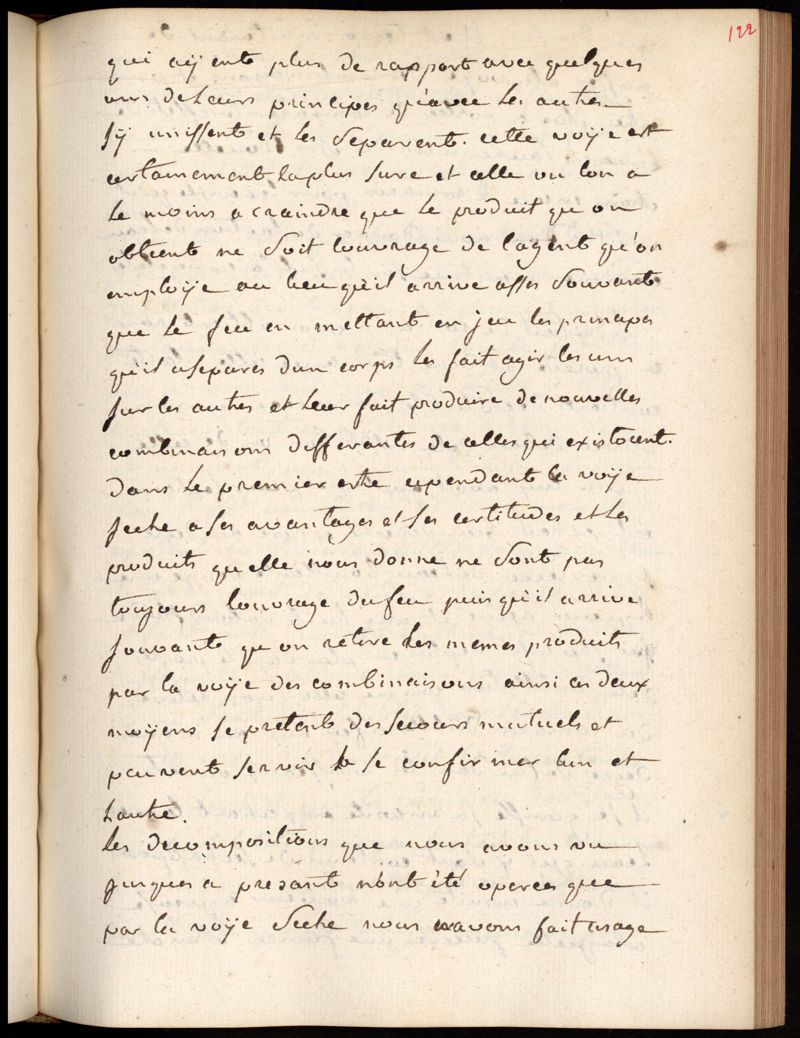 122
qui aÿent plus de rapport avec quelques
uns de leurs principes qu'avec les autres
s'ÿ unissent et les separent. cette voÿe est
certainement la plus sure et celle ou l'on a
le moins a craindre que le produit qu'on
obtient ne soit l'ouvrage de l'agent qu'on
emploÿe au lieu qu'il arrive assés souvant
que le feu en mettant en jeu les principes
qu'il a separés d'un corps les fait agir les uns
sur les autres et leur fait produire de nouvelles
combinaisons differantes de celles qui existoient.
dans le premier cependant la voÿe
seche a ses avantages et ses certitudes et les
produits quelle nous donne ne sont pas
toujours l'ouvrage du feu puis qu'il arrive
souvant qu'on retire les memes produits
par la voÿe des combinaisons ainsi ces deux
moÿens se pretent des secours mutuels et
peuvent servir a se confirmer l'un et
l'autre.
les decompositions que nous avons vu
jusques a presant n'ont été operées que
par la voÿe seche nous avons fait usage